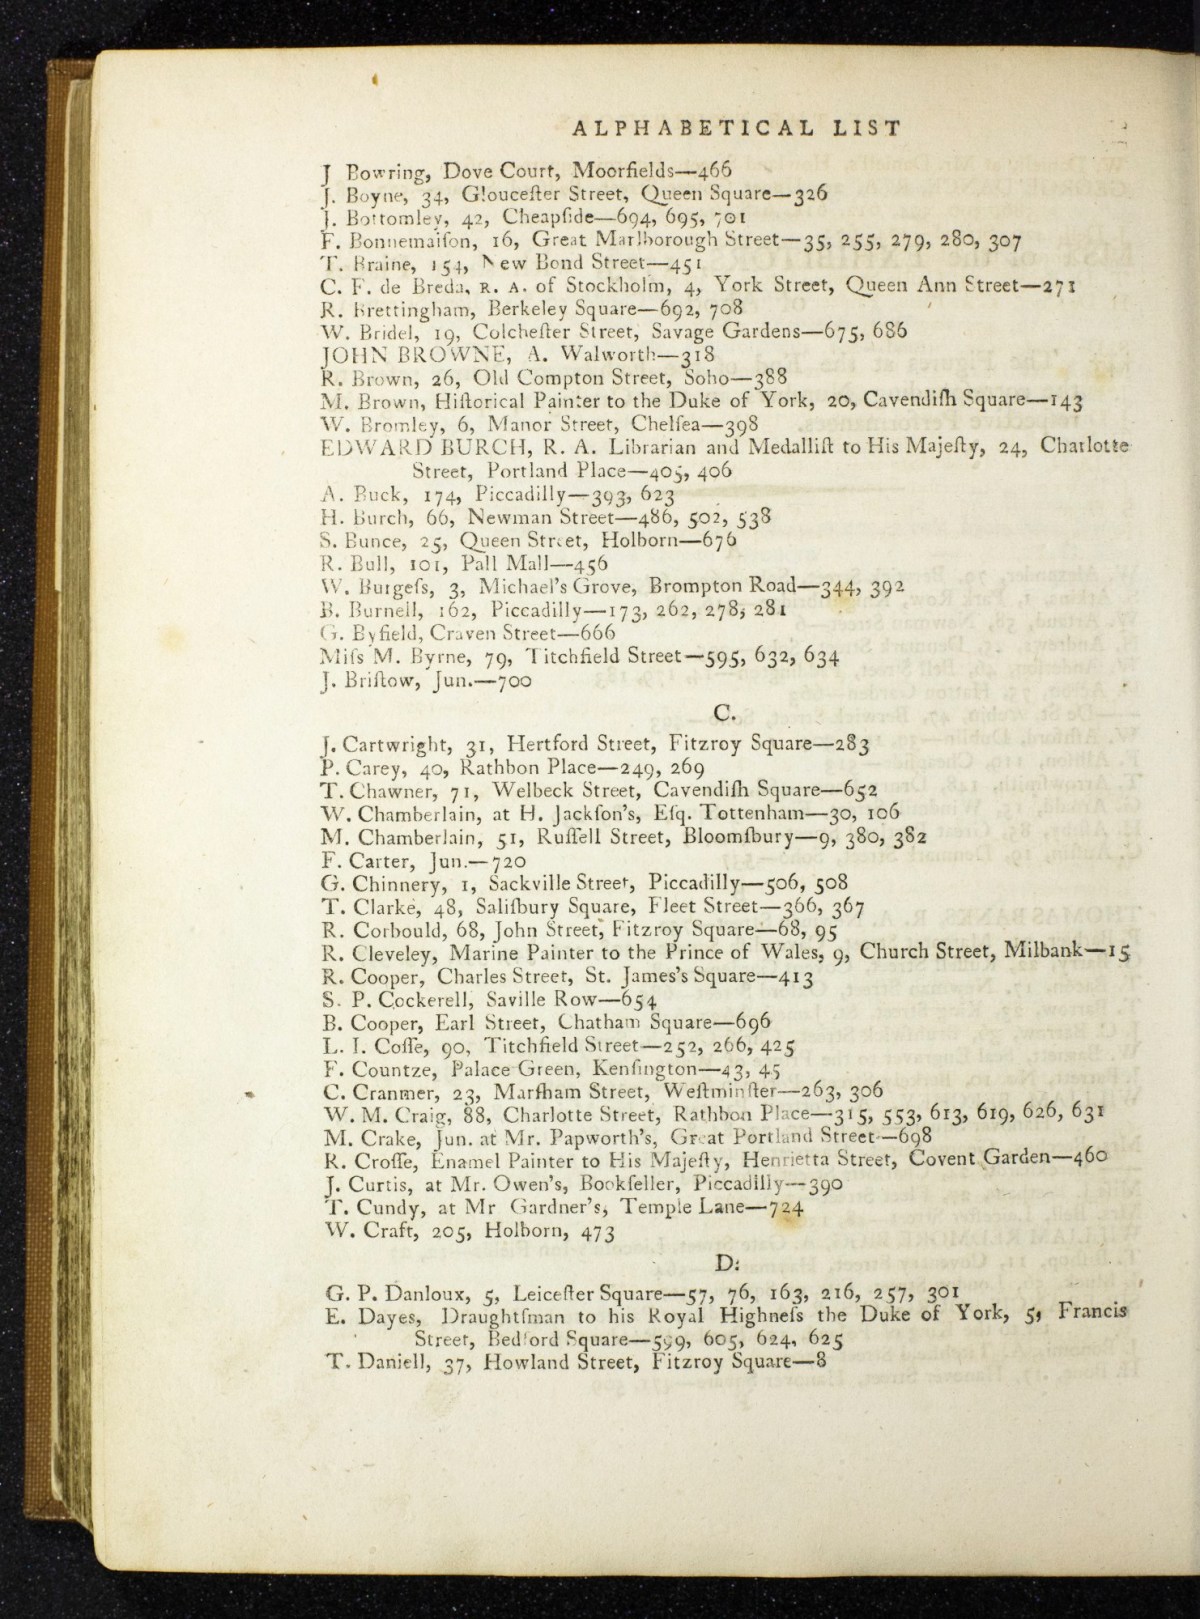 ALPHABETICAL LIST
J Bowring, Dove Court, Moorfields—466
J. Boyne, 34, Glouceſter Street, Queen Square—326
J. Bottomley, 42, Cheapſide—694, 695, 701
F. Bonnemaiſon, 16, Great Marlborough Street—35, 255, 279, 280, 307
T. Braine, 154, New Bond Street—451
C. F. de Breda, R. A. of Stockholm, 4, York Street, Queen Ann Street—271
R. Brettingham, Berkeley Square—692, 708
W. Bridel, 19, Colcheſter Street, Savage Gardens—675, 686
JOHN BROWNE, A. Walworth—318
R. Brown, 26, Old Compton Street, Soho—388
M. Brown, Hiſtorical Painter to the Duke of York, 20, Cavendiſh Square—143
W. Bromley, 6, Manor Street, Chelſea—398
EDWARD BURCH, R. A. Librarian and Medalliſt to His Majeſty, 24, Charlotte
Street, Portland Place—405, 406
A. Buck, 174, Piccadilly—393, 623
H. Burch, 66, Newman Street—486, 502, 538
S. Bunce, 25, Queen Street, Holborn—676
R. Bull, 101, Pall Mall—456
W. Burgeſs, 3, Michael's Grove, Brompton Road—344, 392
B. Burnell, 162, Piccadilly—173, 262, 278, 281
G. Byfield, Craven Street—666
Miſs M. Byrne, 79, Titchfield Street—595, 632, 634
J. Briſtow, Jun.—700
C.
J. Cartwright, 31, Hertford Street, Fitzroy Square—283
P. Carey, 40, Rathbon Place—249, 269
T. Chawner, 71, Welbeck Street, Cavendiſh Square—652
W. Chamberlain, at H. Jackſon's, Eſq. Tottenham—30, 106
M. Chamberlain, 51, Ruſſell Street, Bloomſbury—9, 380, 382
F. Carter, Jun.—720
G. Chinnery, 1, Sackville Street, Piccadilly—506, 508
T. Clarke, 48, Saliſbury Square, Fleet Street—366, 367
R. Corbould, 68, John Street, Fitzroy Square—68, 95
R. Cleveley, Marine Painter to the Prince of Wales, 9, Church Street, Milbank—15
R. Cooper, Charles Street, St. James's Square—413
S. P. Cockerell, Saville Row—654
B. Cooper, Earl Street, Chatham Square—696
L. I. Coſſe, 90, Titchfield Street—252, 266, 425
F. Countze, Palace Green, Kenſington—43, 45
C. Cranmer, 23, Marſham Street, Weſtminſter—263, 306
W. M. Craig, 88, Charlotte Street, Rathbon Place—315, 553, 613, 619, 626, 631
M. Crake, Jun. at Mr. Papworth's, Great Portland Street—698
R. Croſſe, Enamel Painter to His Majeſty, Henrietta Street, Covent Garden—460
J. Curtis, at Mr. Owen's, Bookſeller, Piccadilly—390
T. Cundy, at Mr Gardner's, Temple Lane—724
W. Craft, 205, Holborn, 473
D.
G. P. Danloux, 5, Leiceſter Square—57, 76, 163, 216, 257, 301
E. Dayes, Draughtſman to his Royal Highneſs the Duke of York, 5, Francis
Street, Bedford Square—599, 605, 624, 625
T. Daniell, 37, Howland Street, Fitzroy Square—8